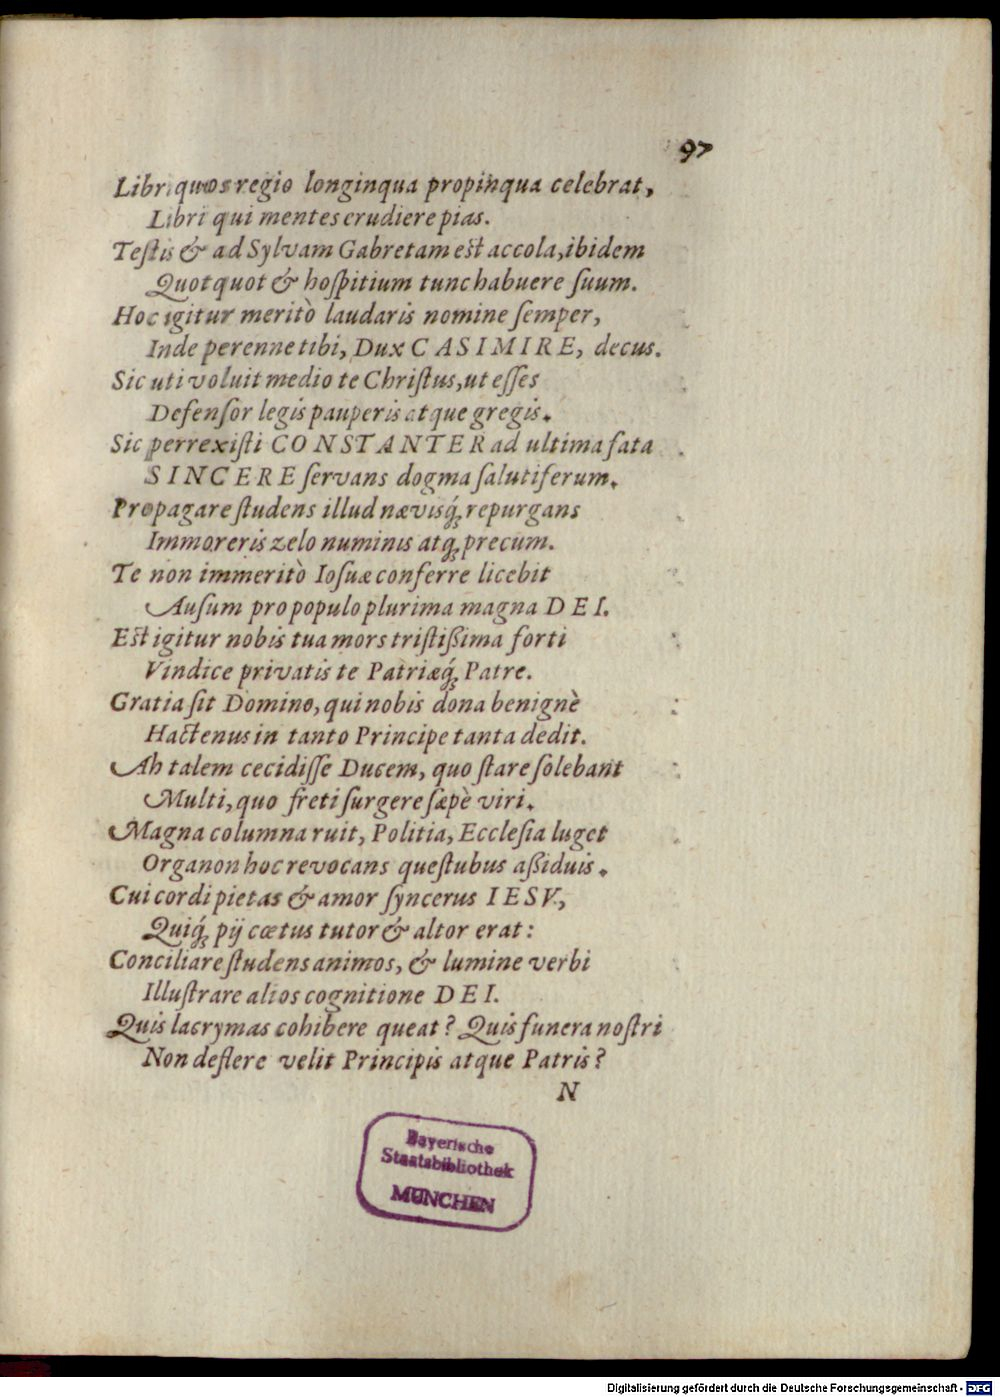 97
Libri quos regio longinqua propinqua celebrat,
Libri qui mentes erudiere pias.
Teſtis & ad Sylvam Gabretam est accola, ibidem
Quotquot & hoſpitium tunc habuere ſuum.
Hoc igitur meritò laudaris nomine ſemper,
Inde perenne tibi, Dux CASIMIRE, decus.
Sic uti voluit medio te Chriſtus, ut eſſes
Defenſor legis pauperis atque gregis.
Sic perrexiſti CONSTANTER ad ultima fata
SINCERE ſervans dogma ſalutiferum.
Propagare ſtudens illud nævisq́; repurgans
Immoreris zelo numinis atq; precum.
Te non immeritò Ioſuæ conferre licebit
Auſum pro populo plurima magna DEI.
Est igitur nobis tua mors triſtißima forti
Vindice privatis te Patriæq́; Patre.
Gratia ſit Domino, qui nobis dona benignè
Hactenus in tanto Principe tanta dedit.
Ah talem cecidiſſe Ducem, quo ſtare ſolebant
Multi, quo freti ſurgere ſæpè viri.
Magna columna ruit, Politia, Eccleſia luget
Organon hoc revocans queſtubus aßiduis.
Cui cordi pietas & amor ſyncerus IESV,
Quiq́; pij cœtus tutor & altor erat:
Conciliare ſtudens animos, & lumine verbi
Illuſtrare alios cognitione DEI.
Quis lacrymas cohibere queat? Quis funera noſtri
Non deflere velit Principis atque Patris?
N
Bayerische
Staatsbibliothek
MÜNCHEN
Digitalisierung gefördert durch die Deutsche Forschungsgemeinschaft - DFG